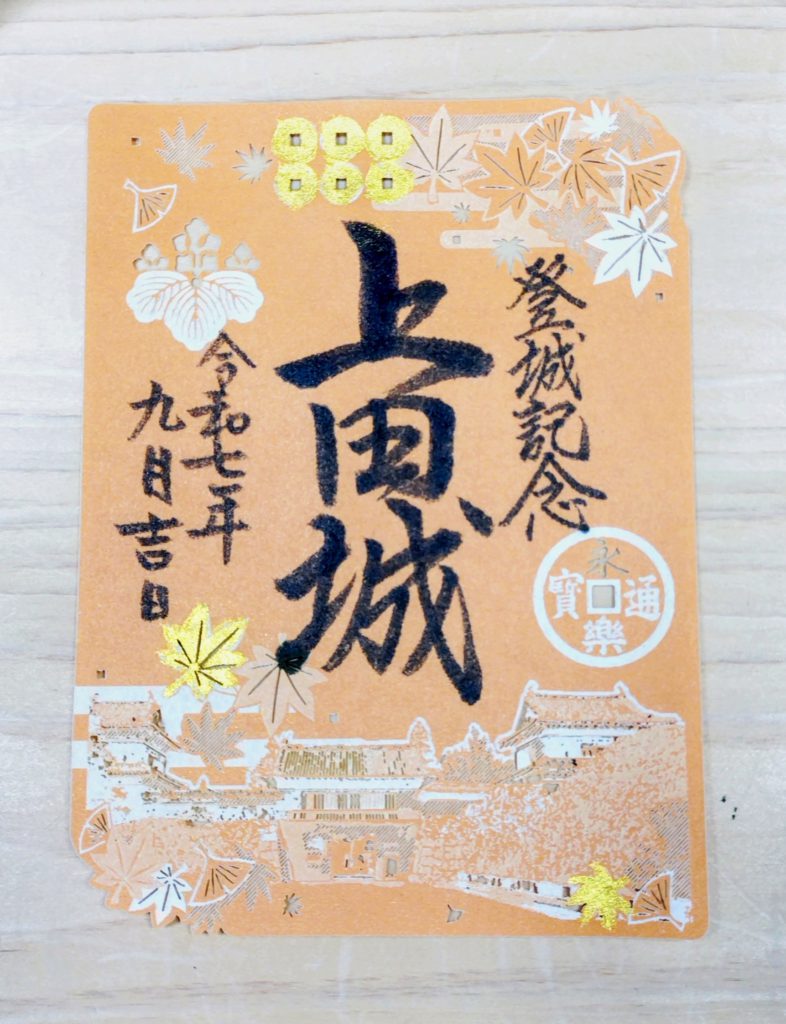 登城記念
上田城
令和七年
九月吉日
永樂通寳